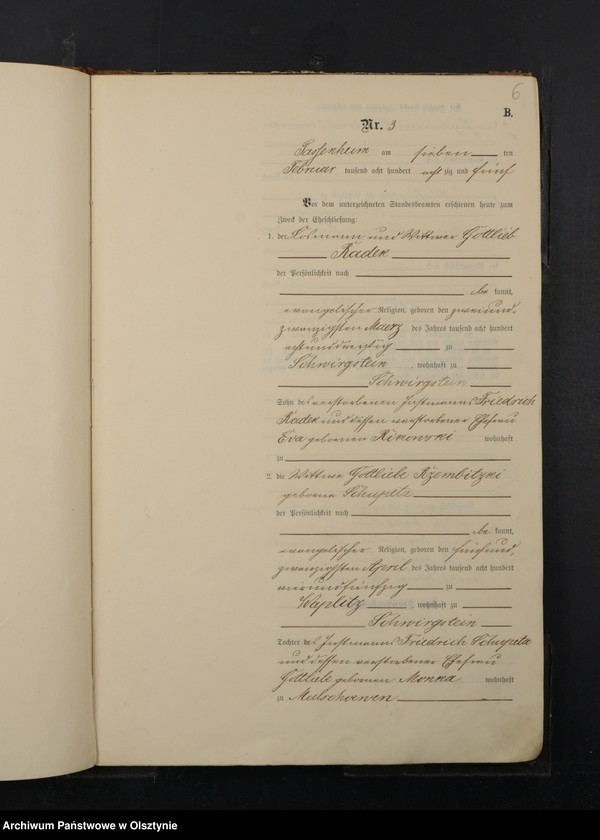 6
B.
Nr. 3
am sieben ten
Februar tausend acht hundert acht zig und fünf
Vor dem unterzeichneten Standesbeamten erschienen heute zum
Zweck der Eheschließung:
1. der Losmann und Wittwer Gottlieb
Radek
der Persönlichkeit nach
be kannt,
evangelischer Religion, geboren den zweiund-
zwanzigsten Maerz des Jahres tausend acht hundert
achtunddreißig zu
Schwirgstein, wohnhaft zu
Schwirgstein
Sohn des verstorbenen Instmanns Friedrich
Radek und dessen verstorbener Ehefrau
Eva geborenen Rikowski wohnhaft
zu
2. die Wittwe Gottliebe Rzembitzki
geborene Schupeta
der Persönlichkeit nach
be kannt,
evangelischer Religion, geboren den fünfund-
zwanzigsten April des Jahres tausend acht hundert
vierundfünfzig zu
Waplitz wohnhaft zu
Schwirgstein
Tochter des Instmanns Friedrich Schupeta
und dessen verstorbener Ehefrau
Gottliebe geborenen Monka wohnhaft
zu Malschoewen
Archiwum Państwowe w Olsztynie